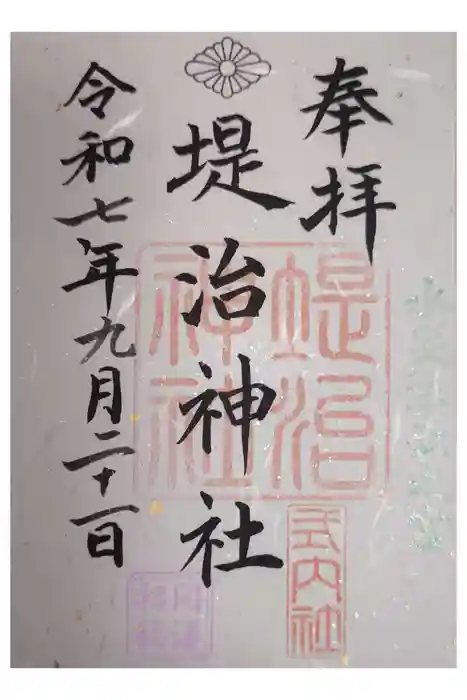 奉拝
堤治神社
令和七年九月二十一日
堤治神社
式内社